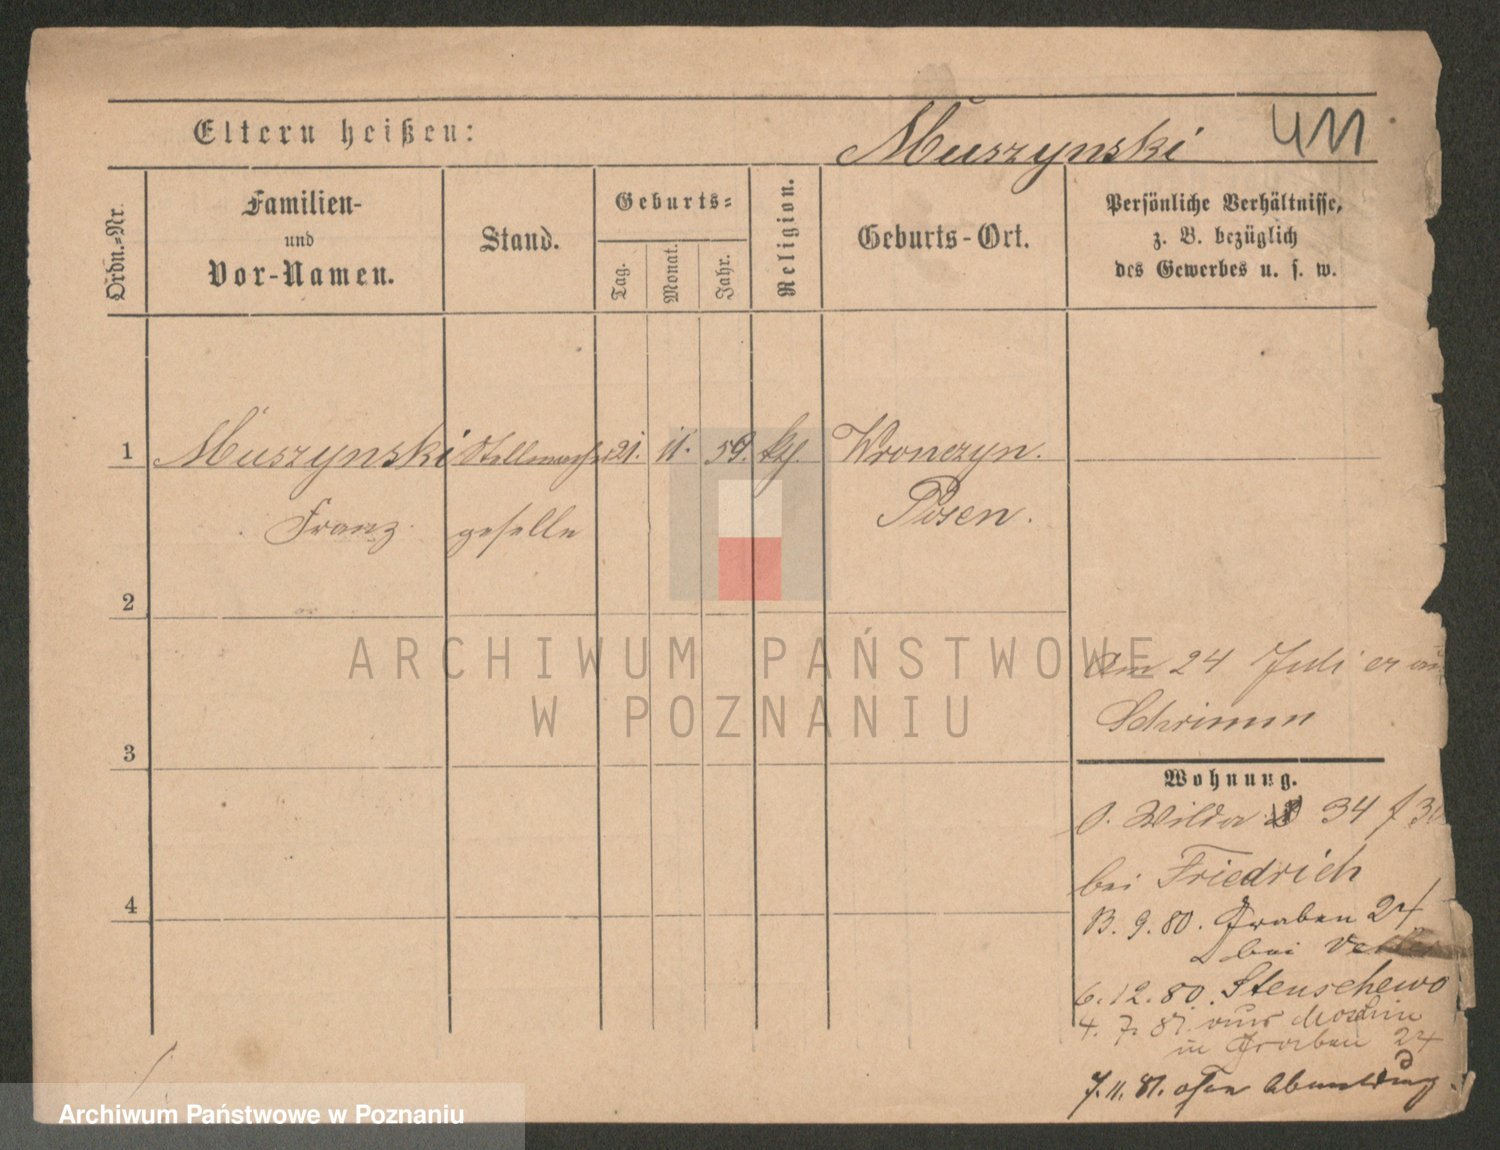 Eltern heißen:
Muszynski
411
Ordn.=Nr.
Familien-
und
Vor-Namen.
Stand.
Geburts=
Tag.
Monat.
Jahr.
Religion.
Geburts-Ort.
Persönliche Verhältnisse,
z. B. bezüglich
des Gewerbes u. s. w.
1
Muszynski Stellmacher 21. 11. 59. kt. Wronczyn.
Franz geselle Posen.
2
3
4
Am 24 Juli er
Schrimm
Wohnung.
O. Wilda 34
bei Friedrich
13. 9. 80. Graben 24
bei
6. 12. 80. Stenschewo
4. 7. 81. aus Moschin
in Graben 24
7. 11. 81. ohne Abmeldung
ARCHIWUM PAŃSTWOWE
W POZNANIU
Archiwum Państwowe w Poznaniu